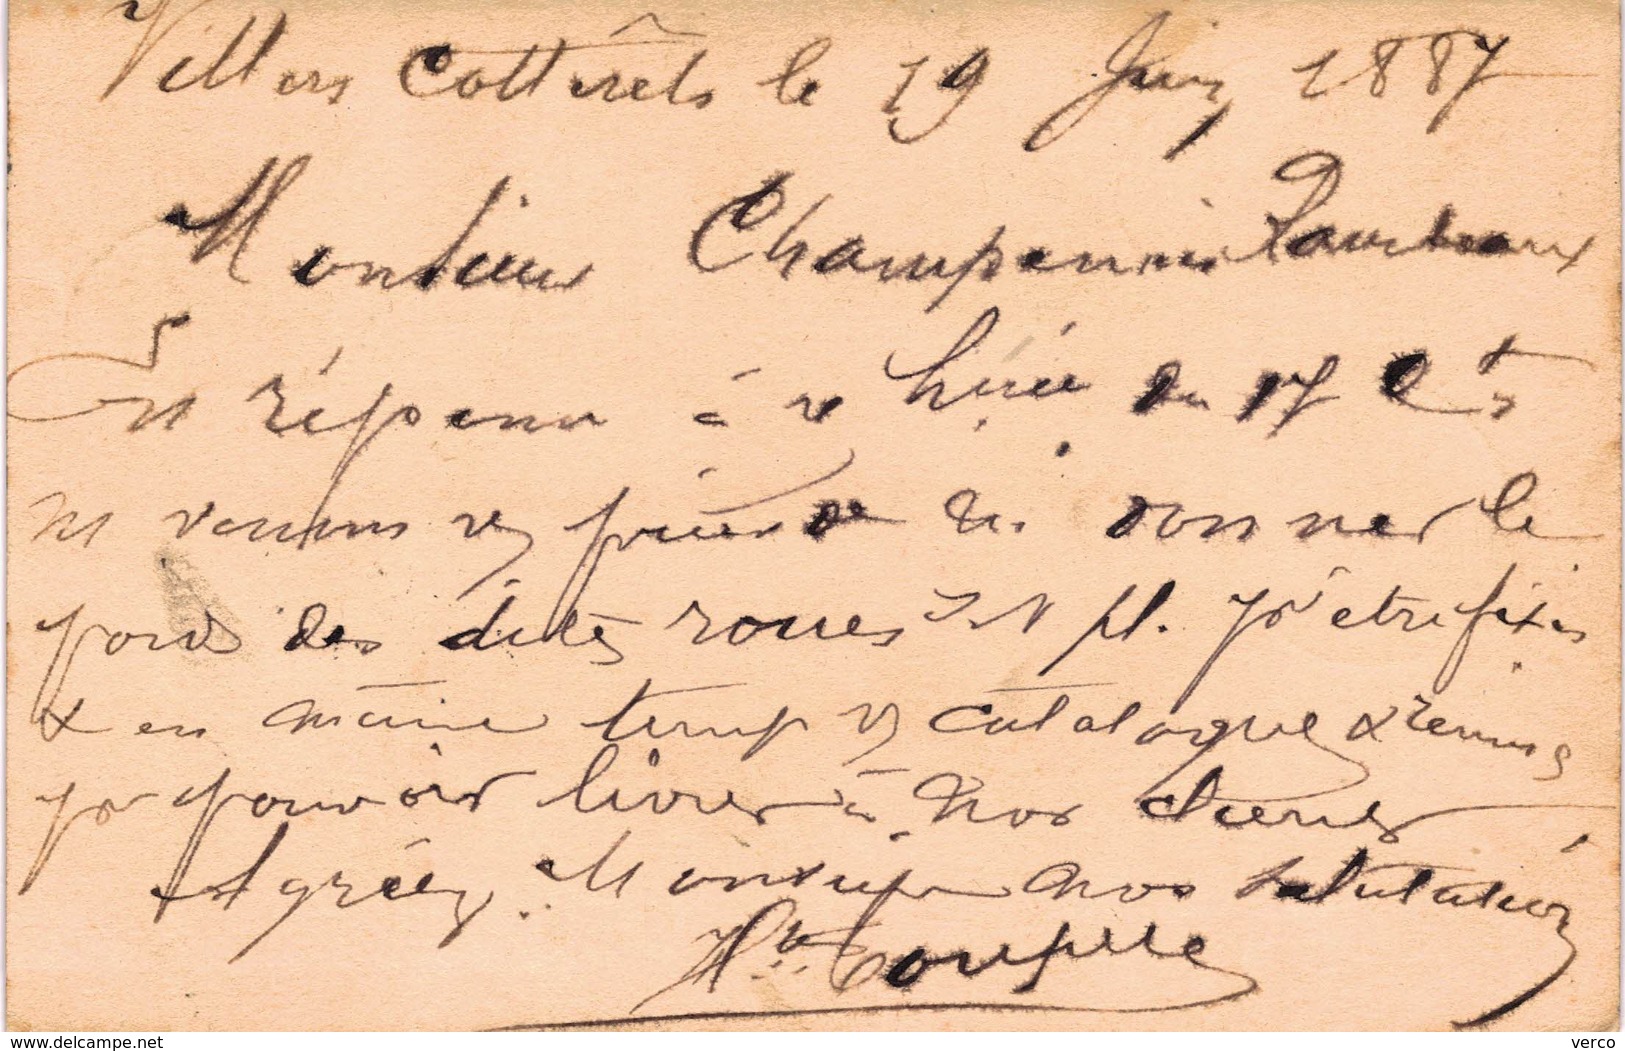 Villers Cotterêts le 19 Juin 1887
Monsieur Champenois Rambeaux
En réponse à v du 17 Ct
ns venons vs prier de ns donner le
poids des dites roues pl. pr être fixés
& en même temps vs catalogue & remises
pr pouvoir livrer à nos clients
Agréez Monsieur nos salutations
www.delcampe.net
verco